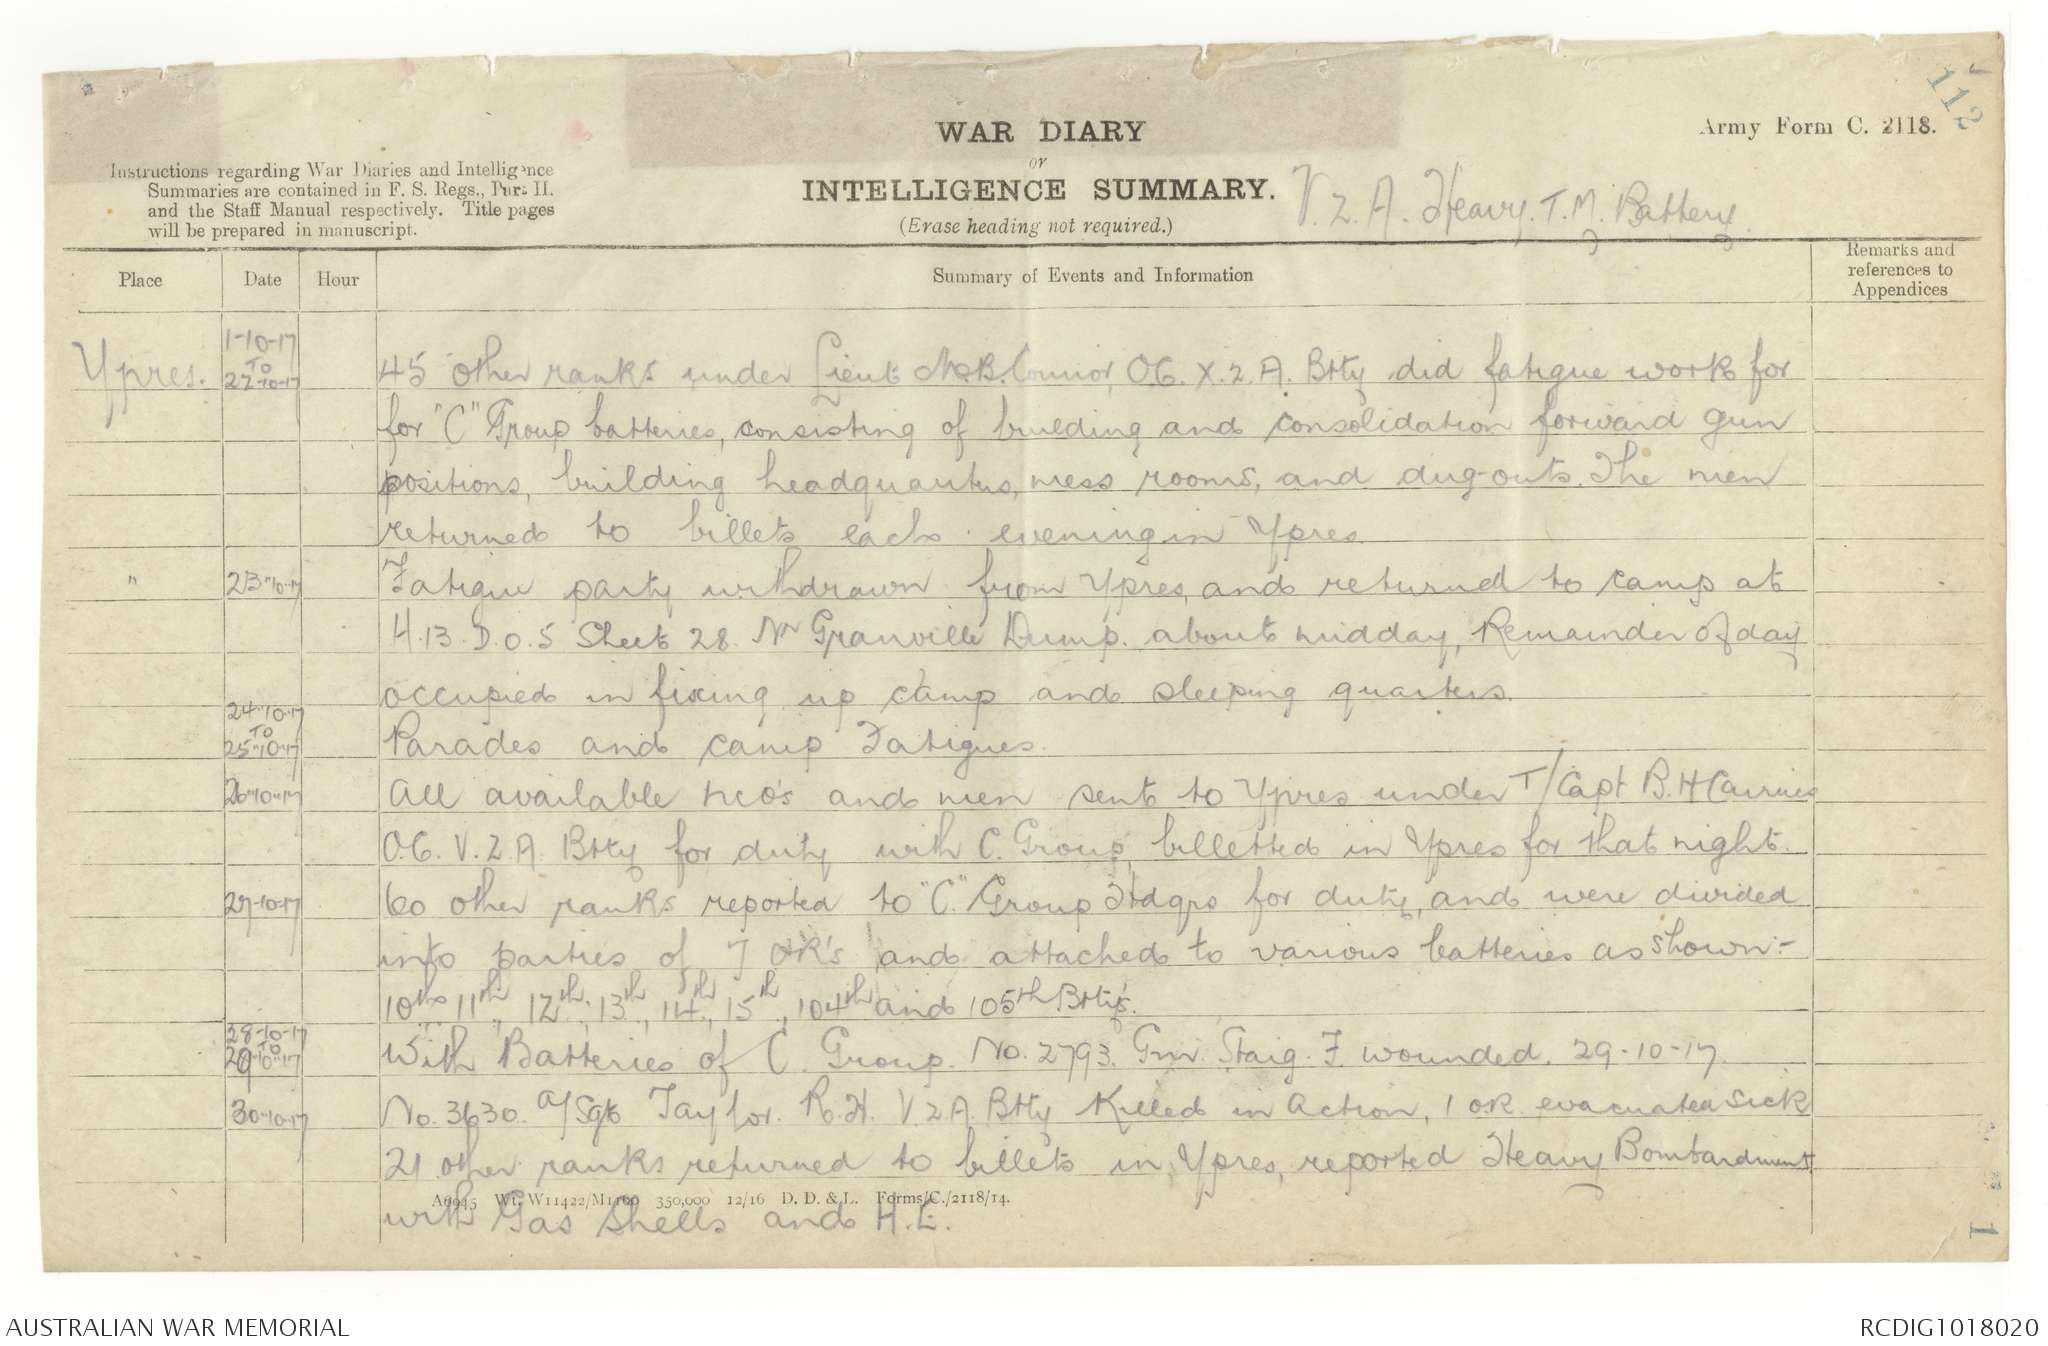 112
WAR DIARY
or
INTELLIGENCE SUMMARY.
(Erase heading not required.)
Army Form C. 2118.
Instructions regarding War Diaries and Intelligence
Summaries are contained in F. S. Regs., Part II.
and the Staff Manual respectively. Title pages
will be prepared in manuscript.
V. 2. A. Heavy. T. M. Battery.
Place Date Hour Summary of Events and Information Remarks and references to Appendices
Ypres. 1-10-17 TO 22-10-17 45 other ranks under Lieut N.B. Connor, O.C. X. 2. A. Btty did fatigue work for
for "C" Group batteries, consisting of building and consolidation forward gun
positions, building headquarters, mess rooms, and dug-outs. The men
returned to billets each evening in Ypres
" 23-10-17 Fatigue party withdrawn from Ypres, and returned to camp at
H.13.D.0.5 Sheet 28. Nr Granville Dump. about midday, Remainder of day
occupied in fixing up camp and sleeping quarters.
24-10-17 TO 25-10-17 Parades and camp Fatigues.
26-10-17 All available NCO's and men sent to Ypres under T/Capt B. H
O.C. V. 2. A. Btty for duty with C. Group, billetted in Ypres for that night.
27-10-17 60 other ranks reported to "C" Group Hdqrs for duty, and were divided
into parties of 7 OR's and attached to various batteries as shown:-
10th, 11th, 12th, 13th, 14th, 15th, 104th and 105th Btty's.
28-10-17 TO 29-10-17 With Batteries of C. Group. No. 2793. Gnr. Staig. F. wounded. 29-10-17.
30-10-17 No. 3630. a/Sgt Taylor. R. H. V. 2 A. Btty Killed in Action, 1 OR. evacuated sick
21 other ranks returned to billets in Ypres, reported Heavy Bombardment
with Gas Shells and H.E.
A6945 Wt. W11422/M1160 350,000 12/16 D. D. & L. Forms/C./2118/14.
1
AUSTRALIAN WAR MEMORIAL
RCDIG1018020